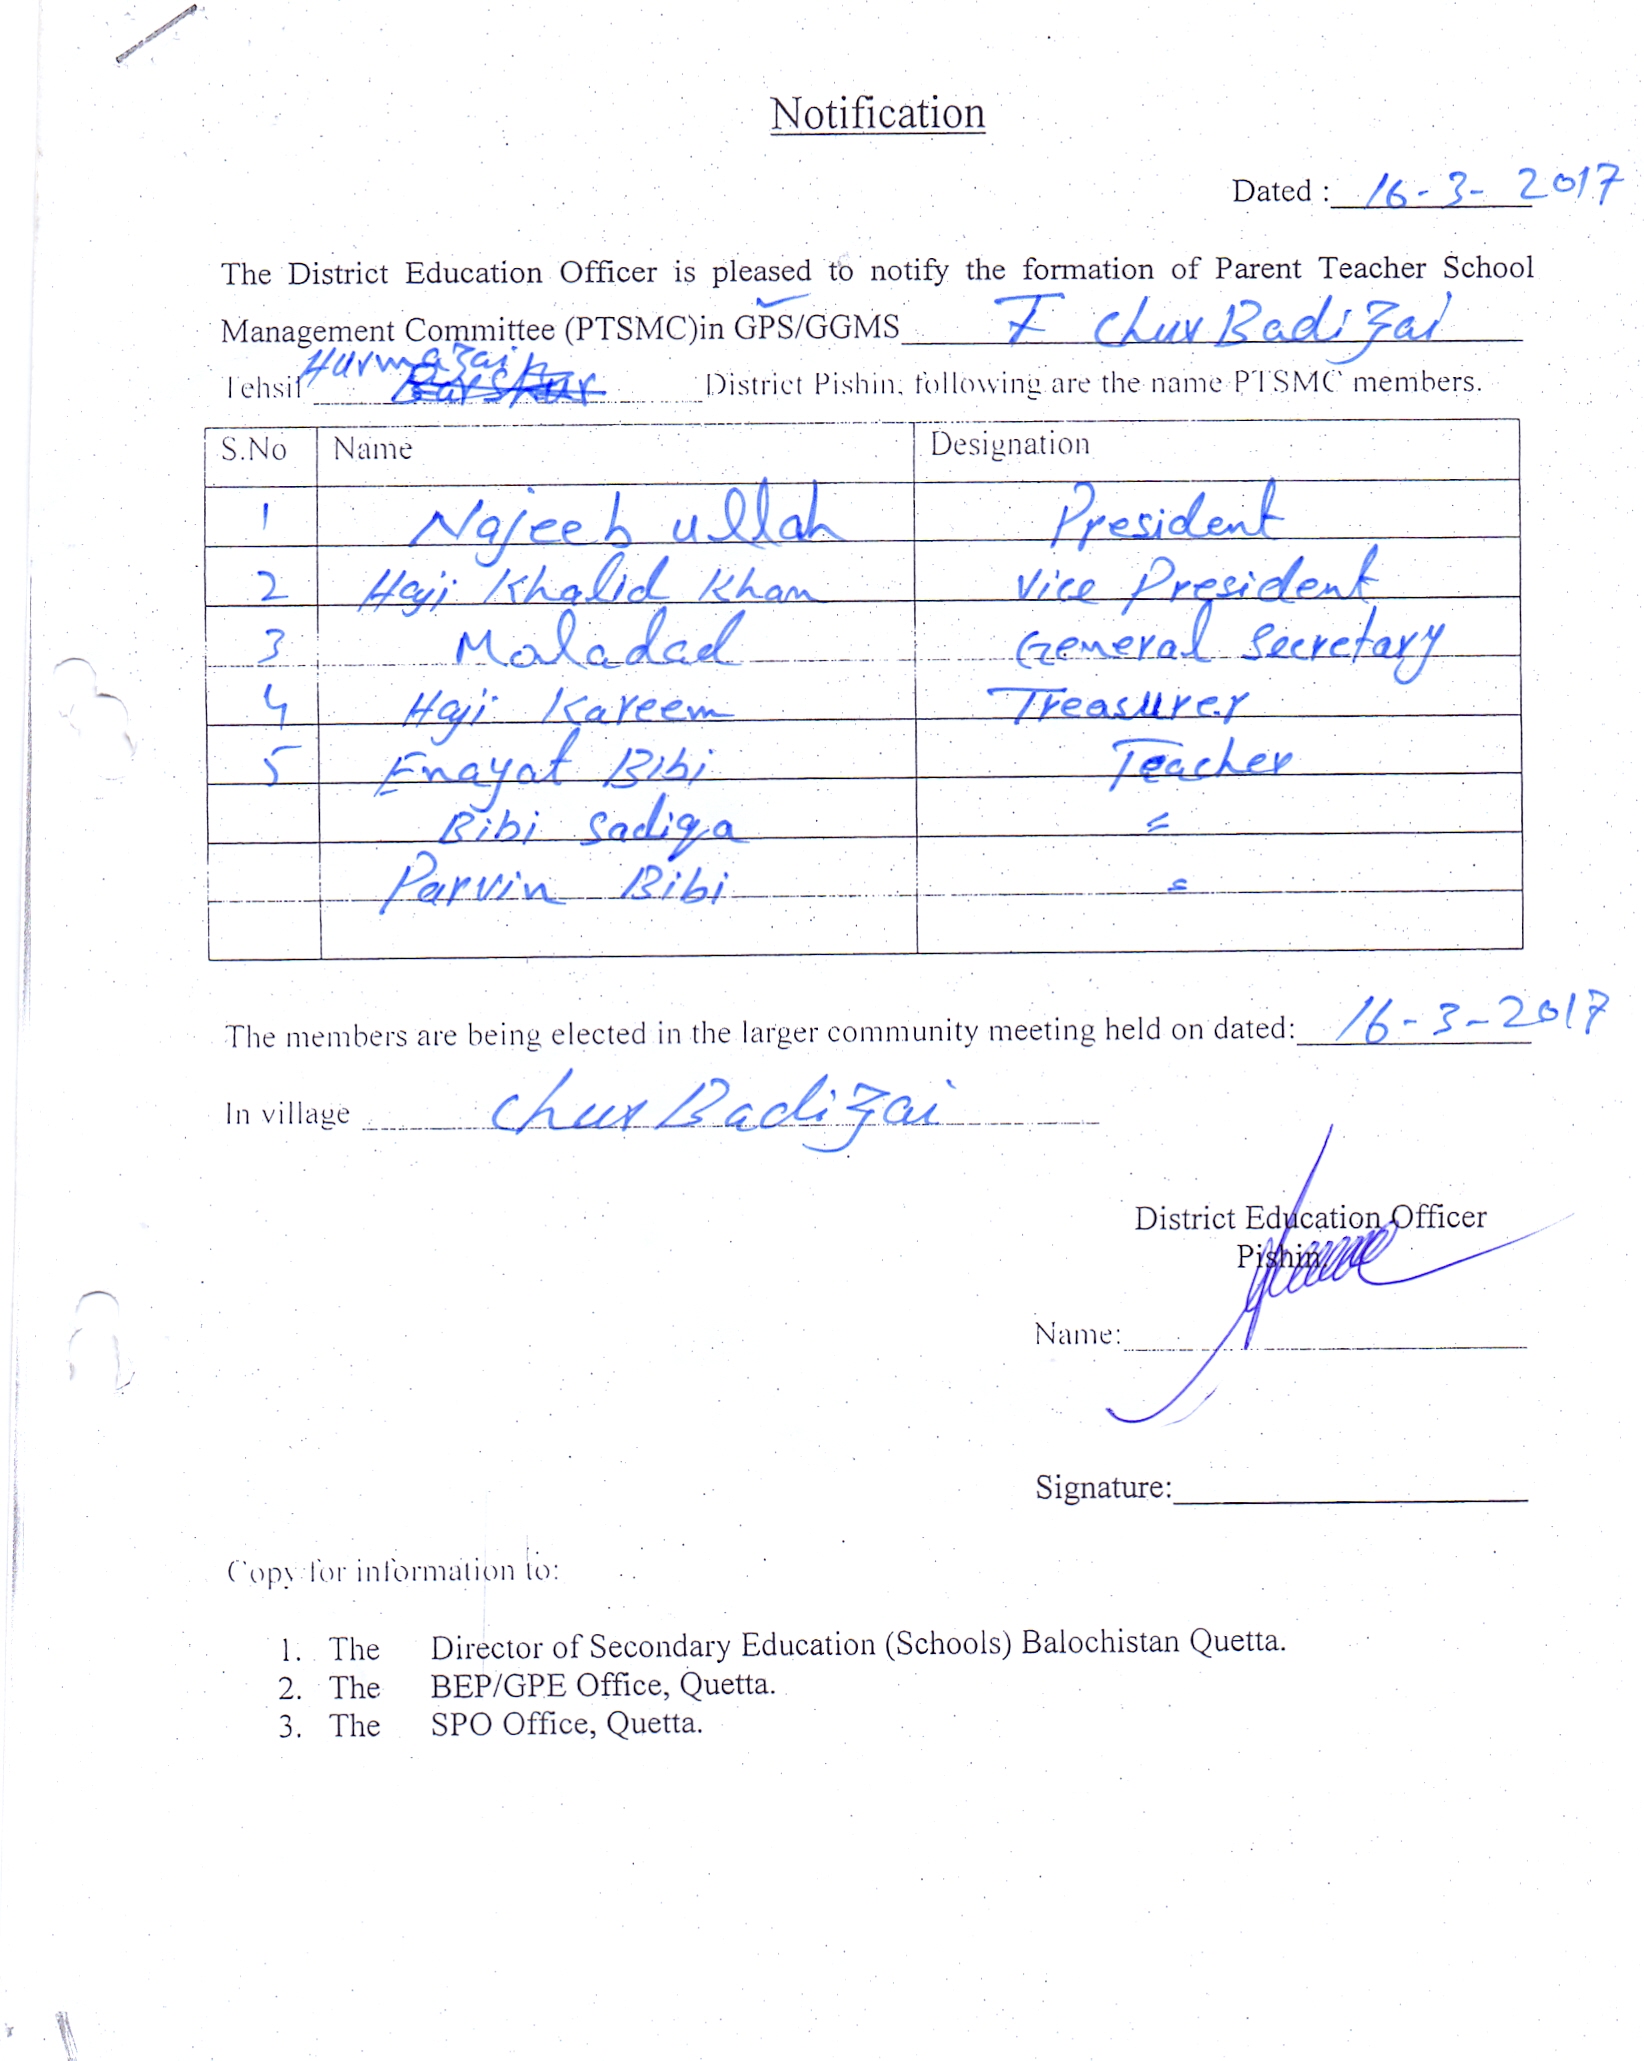 Notification
Dated : 16-3-2017
The District Education Officer is pleased to notify the formation of Parent Teacher School
Management Committee (PTSMC)in GPS/GGMS F Chur Badizai
Tehsil Hurmazai District Pishin, following are the name PTSMC members.
S.No Name Designation
1 Najeeb ullah President
2 Haji Khalid Khan Vice President
3 Maladad General Secretary
4 Haji Kareem Treasurer
5 Enayat Bibi Teacher
Bibi Sadiqa =
Parvin Bibi =
The members are being elected in the larger community meeting held on dated: 16-3-2017
In village Chur Badizai
District Education Officer
Pishin.
Name:
Signature:
Copy for information to:
1. The Director of Secondary Education (Schools) Balochistan Quetta.
2. The BEP/GPE Office, Quetta.
3. The SPO Office, Quetta.